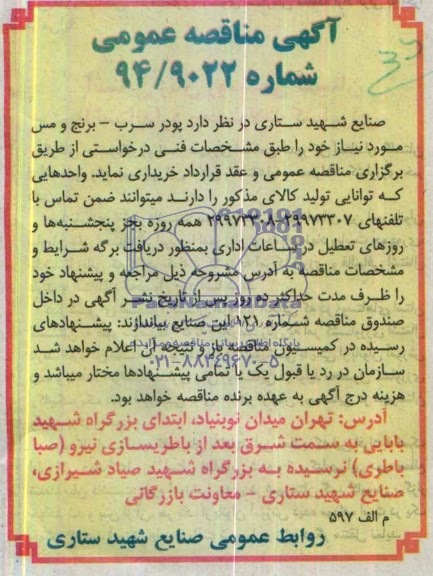 آگهی مناقصه عمومی
شماره ۹۴/۹۰۲۲
صنایع شهید ستاری در نظر دارد پودر سرب - برنج و مس
مورد نیاز خود را طبق مشخصات فنی درخواستی از طریق
برگزاری مناقصه عمومی و عقد قرارداد خریداری نماید. واحدهایی
که توانایی تولید کالای مذکور را دارند میتوانند ضمن تماس با
تلفنهای ۲۹۹۷۳۳۰۷-۲۹۹۷۳۳۰۸ همه روزه بجز پنجشنبه‌ها و
روزهای تعطیل در ساعات اداری بمنظور دریافت برگه شرایط و
مشخصات مناقصه به آدرس مشروحه ذیل مراجعه و پیشنهاد خود
را ظرف مدت حداکثر ده روز پس از تاریخ نشر آگهی در داخل
صندوق مناقصه شماره ۱۲۱ این صنایع بیاندازند: پیشنهادهای
رسیده در کمیسیون مناقصه باز و نتیجه آن اعلام خواهد شد
سازمان در رد یا قبول یک یا تمامی پیشنهادها مختار میباشد و
هزینه درج آگهی به عهده برنده مناقصه خواهد بود.
آدرس: تهران میدان نوبنیاد، ابتدای بزرگراه شهید
بابایی به سمت شرق بعد از باطریسازی نیرو (صبا
باطری) نرسیده به بزرگراه شهید صیاد شیرازی،
صنایع شهید ستاری - معاونت بازرگانی
م الف ۵۹۷
روابط عمومی صنایع شهید ستاری
۰۲۱-۸۸۳۴۹۶۷۰-۵